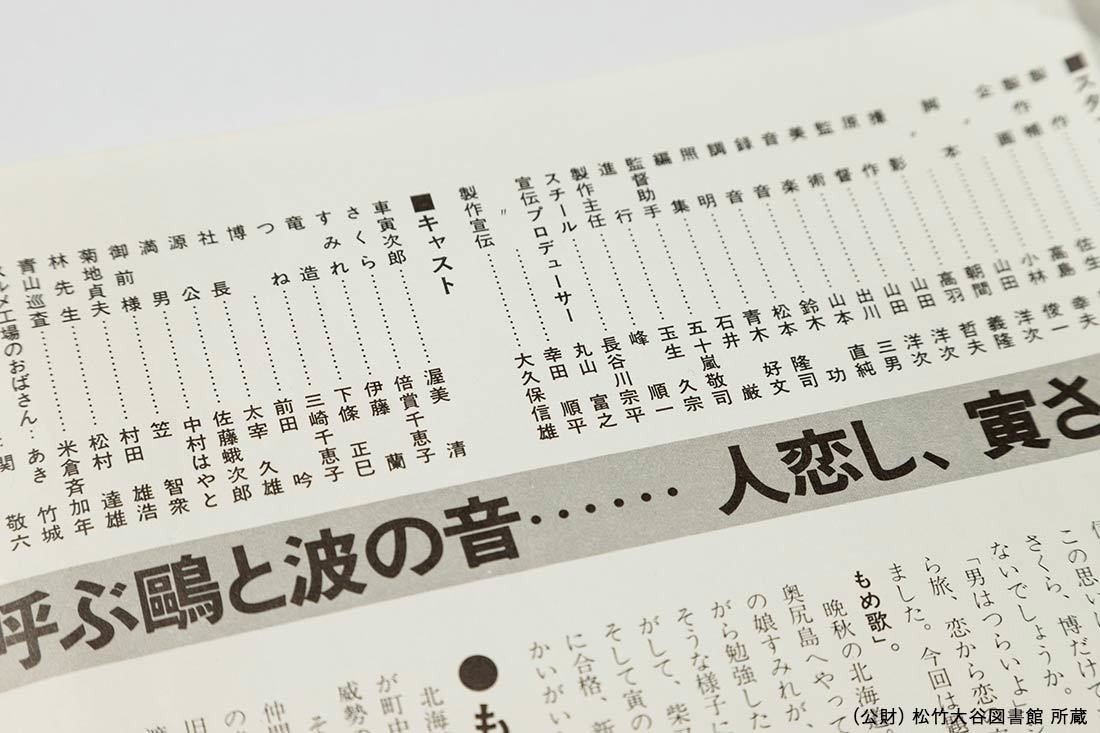 ■スタッ
製作補……佐生
企画……高島 幸夫
〃……小林 俊一
脚本……山田 洋次
〃……朝間 義隆
撮影……高羽 哲夫
原作……山田 洋次
監督……山田 洋次
美術……出川 三男
音楽……山本 直純
録音……鈴木 功
調音……松本 隆司
照明……青木 好文
編集……石井 巌
監督助手……五十嵐敬司
進行……玉生 久宗
製作主任……峰 順一
スチール……長谷川宗平
宣伝プロデューサー 丸山 富之
〃……幸田 順平
製作宣伝……大久保信雄
■キャスト
車寅次郎……渥美 清
さくら……倍賞千恵子
すみれ……伊藤 蘭
竜造……下條 正巳
つね……三崎千恵子
博……前田 吟
社長……太宰 久雄
源公……佐藤蛾次郎
満男……中村はやと
御前様……笠 智衆
菊地貞夫……村田 雄浩
林先生……松村 達雄
青山巡査……米倉斉加年
スルメ工場のおばさん…あき 竹城
関 敬六
呼ぶ鷗と波の音…… 人恋し、寅さ
この思い
さくら、博だけで
ないでしょうか。
「男はつらいよ
ら旅、恋から恋
ました。今回は
もめ歌」。
晩秋の北海道
奥尻島へやって
の娘すみれが、
がら勉強した
そうな様子に
がして、柴
そして寅の
に合格、新
かいがい
●も
北海
が町中
威勢
そ
の
仲
旧
(公財) 松竹大谷図書館 所蔵